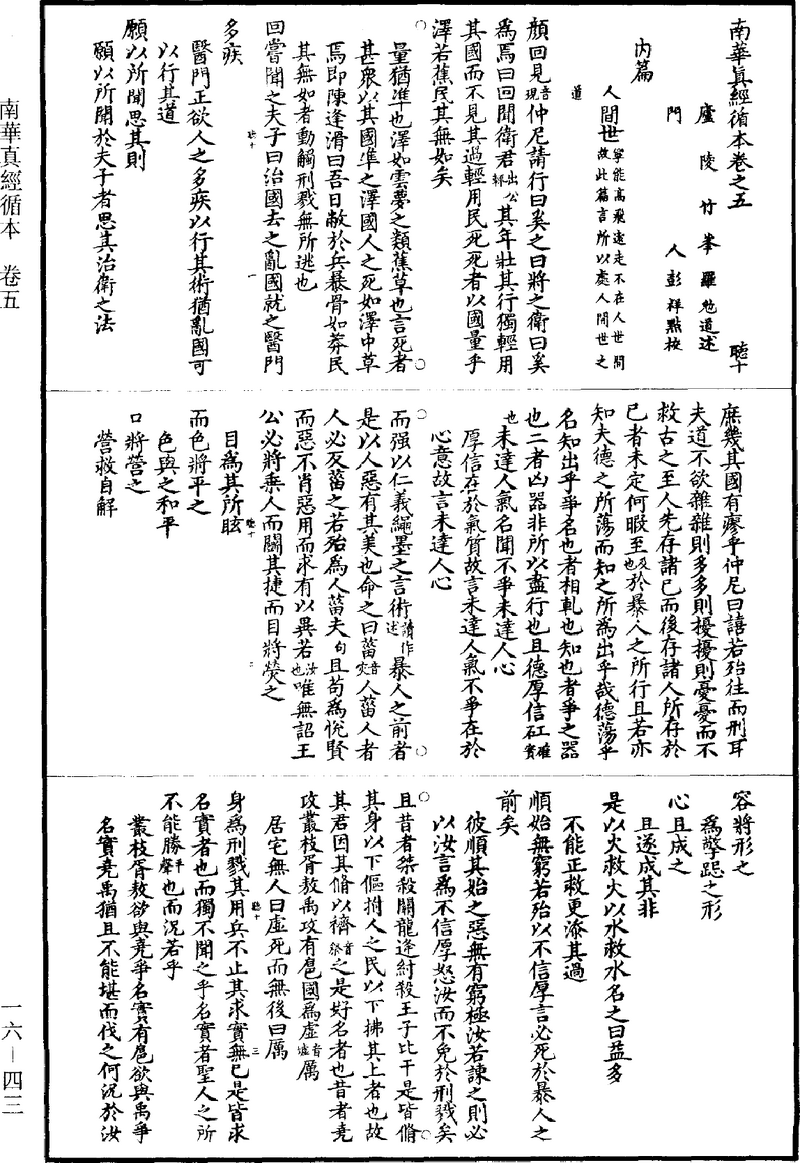 南華眞經循本卷之五
聽十
廬陵竹峯羅勉道述
門人彭祥點校
內篇
人間世寧能高飛遠走不在人世間故此篇言所以處人間世之道
顏回見音現仲尼請行曰奚之曰將之衛曰奚
爲焉曰回聞衛君出公輒其年壯其行獨輕用
其國而不見其過輕用民死死者以國量乎
澤若蕉民其無如矣
量猶準也澤如雲夢之類蕉草也言死者
甚衆以其國準之澤國人之死如澤中草
焉即陳逢滑曰吾日敝於兵暴骨如莽民
其無如者動觸刑戮無所逃也
回嘗聞之夫子曰治國去之亂國就之醫門
多疾
聽十
一
醫門正欲人之多疾以行其術猶亂國可
以行其道
願以所聞思其則
願以所聞於夫子者思其治衛之法
庶幾其國有瘳乎仲尼曰譆若殆往而刑耳
夫道不欲雜雜則多多則擾擾則憂憂而不
救古之至人先存諸己而後存諸人所存於
己者未定何暇至及也於暴人之所行且若亦
知夫德之所蕩而知之所爲出乎哉德蕩乎
名知出乎爭名也者相軋也知也者爭之器
也二者凶器非所以盡行也且德厚信矼確實
也未達人氣名聞不爭未達人心
厚信在於氣質故言未達人氣不爭在於
心意故言未達人心
而强以仁義繩墨之言術讀作述暴人之前者
是以人惡有其美也命之曰菑音灾人菑人者
人必反菑之若殆爲人菑夫句且苟爲悅賢
而惡不肖惡用而求有以異若汝也唯無詔王
公必將乘人而鬭其捷而目將熒之
聽十
二
目爲其所眩
而色將平之
色與之和平
口將營之
營救自解
容將形之
爲擎跽之形
心且成之
且遂成其非
是以火救火以水救水名之曰益多
不能正救更添其過
順始無窮若殆以不信厚言必死於暴人之
前矣
彼順其始之惡無有窮極汝若諫之則必
以汝言爲不信厚怒汝而不免於刑戮矣
且昔者桀殺關龍逢紂殺王子比干是皆脩
其身以下傴拊人之民以下拂其上者也故
其君因其脩以擠音祭之是好名者也昔者堯
攻叢枝胥敖禹攻有扈國爲虛音墟厲
居宅無人曰虛死而無後曰厲
聽十
三
身爲刑戮其用兵不止其求實無已是皆求
名實者也而獨不聞之乎名實者聖人之所
不能勝平聲也而況若乎
叢枝胥敖欲與堯爭名實有扈欲與禹爭
名實堯禹猶且不能堪而伐之何況於汝
南華真經循本　卷五
一六－四三